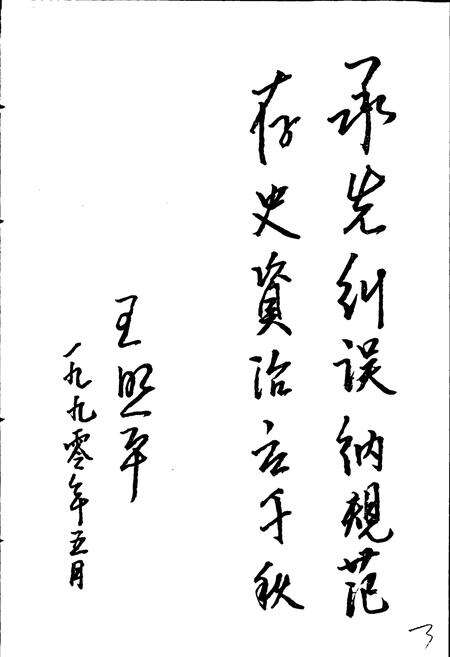 承先纠误纳规范
存史資治立千秋
王照平
一九九零年五月
3